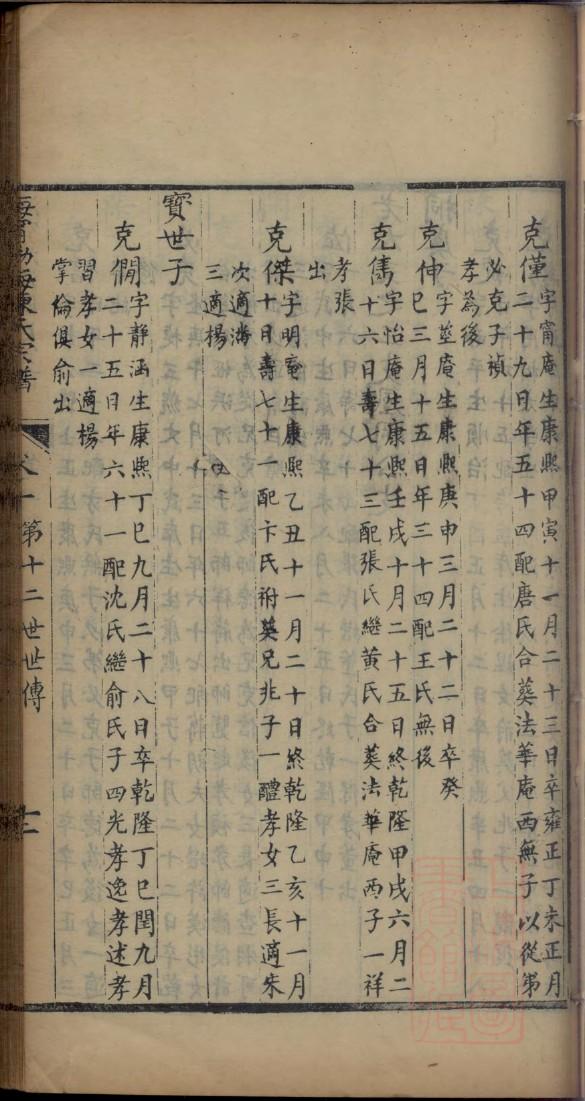 克僅 字甯庵生康熙甲寅十一月二十三日卒雍正丁未正月
二十九日年五十四配唐氏合葬法華庵西無子以從弟
必克子禎
孝為後
克伸 字莁庵生康熙庚申三月二十二日卒癸
巳三月十五日年三十四配王氏無後
克雋 字怡庵生康熙壬戌十月二十五日終乾隆甲戌六月二
十六日壽七十三配張氏繼黃氏合葬法華庵西子一祥
孝張
出
克傑 字明庵生康熙乙丑十一月二十日終乾隆乙亥十一月
十日壽七十一配卞氏祔葬兄兆子一醴孝女三長適朱
次適
三適楊
寶世子
克僩 字靜涵生康熙丁巳九月二十八日卒乾隆丁巳閏九月
二十五日年六十一配沈氏繼俞氏子四光孝逸孝述孝
習孝女一適楊
掌倫俱俞出
海甯渤海陳氏宗譜
第十二世世傳
十二